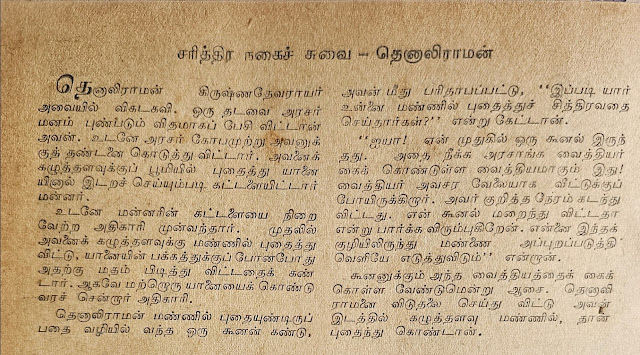 சரித்திர நகைச் சுவை — தெனாலிராமன்
தெனாலிராமன் கிருஷ்ணதேவராயர்
அவையில் விகடகவி. ஒரு தடவை அரசர்
மனம் புண்படும் விதமாகப் பேசி விட்டான்
அவன். உடனே அரசர் கோபமுற்று அவனுக்
குத் தண்டனை கொடுத்து விட்டார். அவனைக்
கழுத்தளவுக்குப் பூமியில் புதைத்து யானை
யினால் இடறச் செய்யும்படி கட்டளையிட்டார்
மன்னர்.
உடனே மன்னரின் கட்டளையை நிறை
வேற்ற அதிகாரி முன்வந்தார். முதலில்
அவனைக் கழுத்தளவுக்கு மண்ணில் புதைத்து
விட்டு, யானையின் பக்கத்துக்குப் போனபோது
அதற்கு மதம் பிடித்து விட்டதைக் கண்
டார். ஆகவே மற்றொரு யானையைக் கொண்டு
வரச் சென்றார் அதிகாரி.
தெனாலிராமன் மண்ணில் புதையுண்டிருப்
பதை வழியில் வந்த ஒரு கூனன் கண்டு,
அவன் மீது பரிதாபப்பட்டு, ‘‘இப்படி யார்
உன்னை மண்ணில் புதைத்துச் சித்திரவதை
செய்தார்கள்?’’ என்று கேட்டான்.
‘‘ஐயா! என் முதுகில் ஒரு கூனல் இருந்
தது. அதை நீக்க அரசாங்க வைத்தியர்
கைக் கொண்டுள்ள வைத்தியமாகும் இது!
வைத்தியர் அவசர வேலையாக வீட்டுக்குப்
போயிருக்கிறார். அவர் குறித்த நேரம் கடந்து
விட்டது. என் கூனல் மறைந்து விட்டதா
என்று பார்க்க விரும்புகிறேன். என்னை இந்தக்
குழியிலிருந்து மண்ணை அப்புறப்படுத்தி
வெளியே எடுத்துவிடும்’’ என்றான்.
கூனனுக்கும் அந்த வைத்தியத்தைக் கைக்
கொள்ள வேண்டுமென்று ஆசை. தெனாலி
ராமனை விடுதலை செய்து விட்டு அவன்
இடத்தில் கழுத்தளவு மண்ணில், தான்
புதைந்து கொண்டான்.